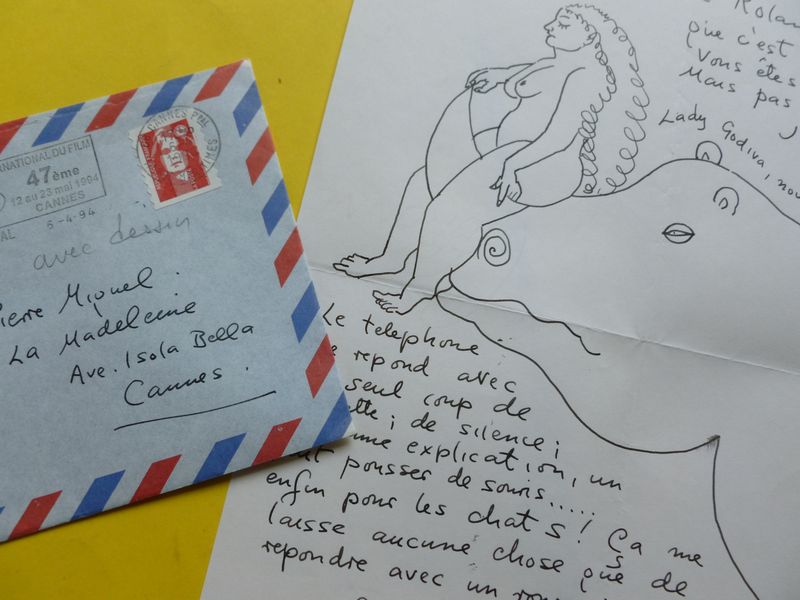 NATIONAL DU FILM
47ème
12 au 23 mai 1994
CANNES
6-4.94
CANNES PPAL
avec dessin
Pierre Miquel.
La Madeleine
Ave. Isola Bella
Cannes.
Rolan
que c'est
Vous êtes
Mais pas
Lady Godiva, nou
Le telephone
repond avec
seul coup de
de silence;
explication, un
pousser de souris.....!
enfin pour les chats! Ça me
laisse aucune chose que de
repondre avec un